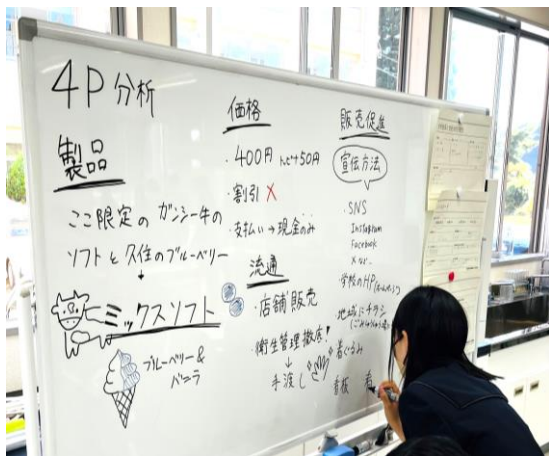 4P分析
製品
ここ限定の ガンジー牛の
ソフトと久住のブルーベリー
↓
ミックスソフト
ブルーベリー&
バニラ
価格
・400円 トッピング+50円
・割引 ×
・支払い→現金のみ
流通
・店舗販売
・衛生管理徹底!
↓
手渡し
販売促進
宣伝方法
・SNS
Instagram
Facebook
Xなど..
・学校のHP
・地域にチラシ
・着ぐるみ
看板